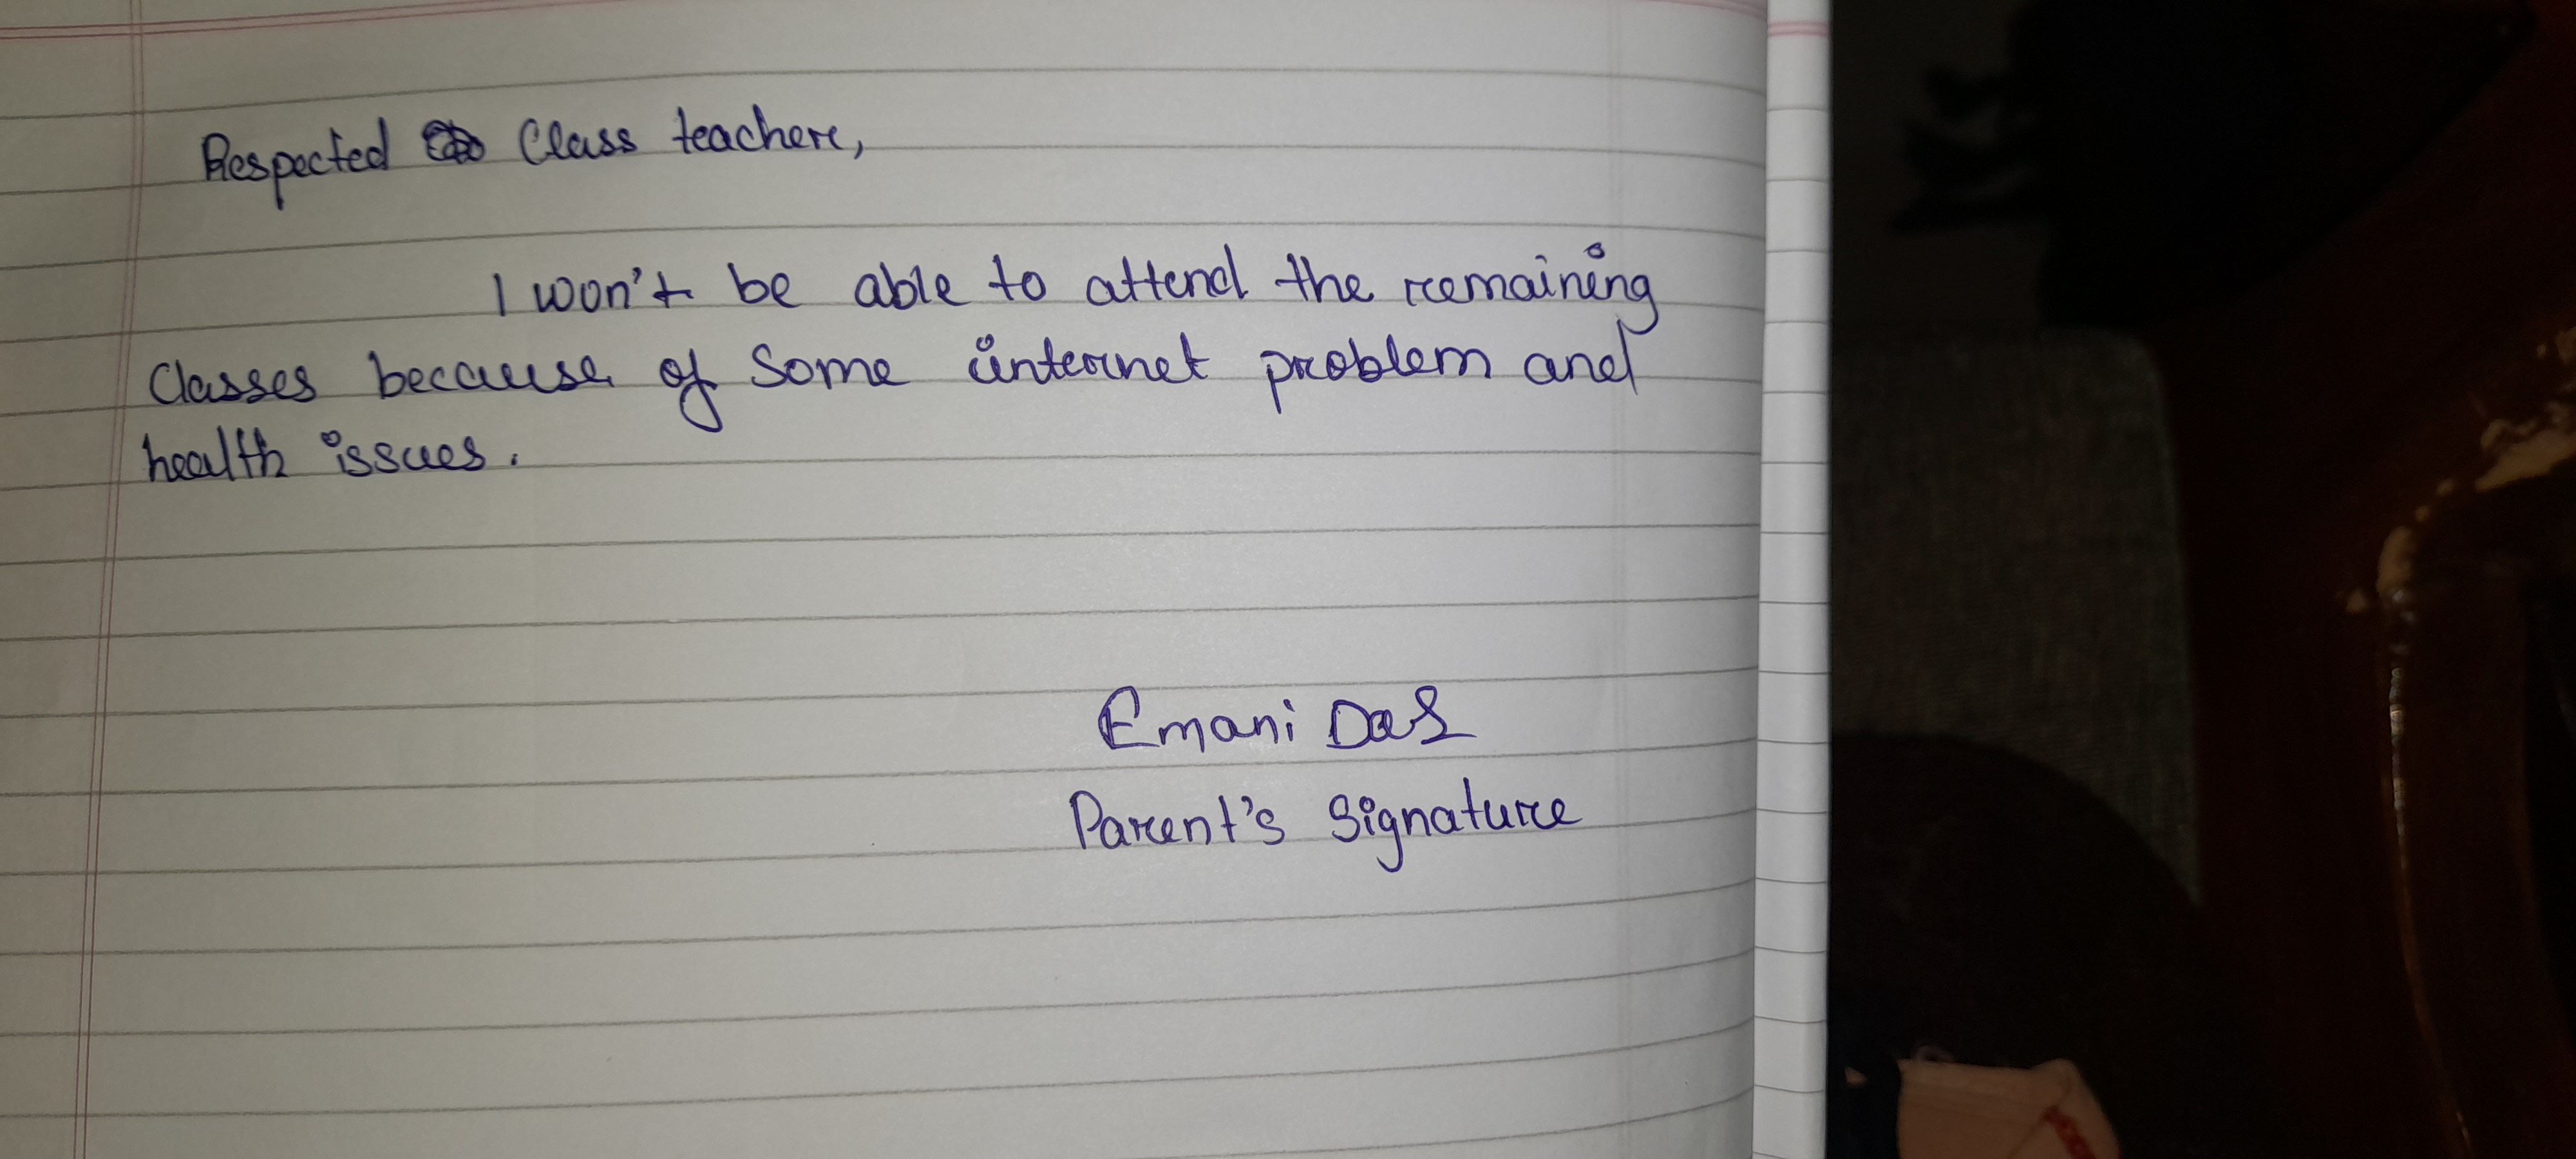 Respected Class teacher,
I won't be able to attend the remaining
Classes because of some internet problem and
health issues.
Emani Das
Parent's Signature